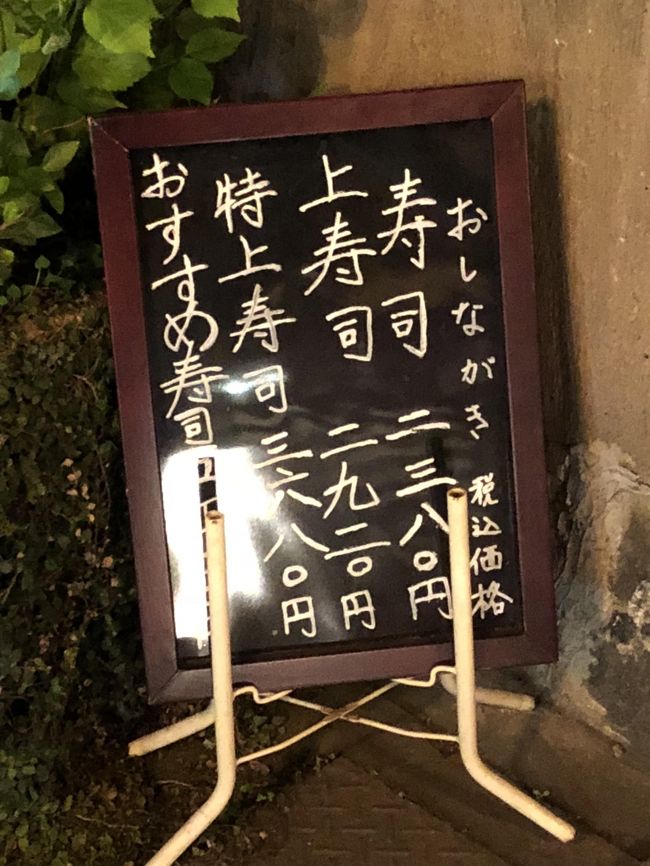 おしながき 税込価格
寿司 二三八〇円
上寿司 二九二〇円
特上寿司 三六八〇円
おすすめ寿司